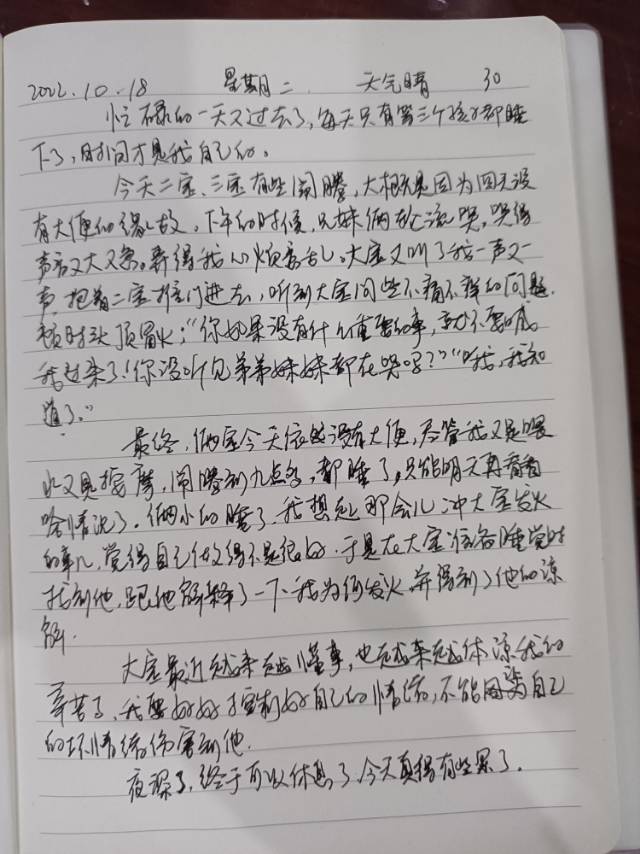 2022.10.18 星期二 天气晴 30
忙碌的一天又过去了,每天只有等三个孩子都睡
下了,时间才是我自己的。
今天二宝、三宝有些闹腾,大概是因为四天没
有大便的缘故,下午的时候,兄妹俩轮流哭,哭得
声音又大又急。弄得我心烦意乱。大宝又叫了我一声又一
声,抱着二宝推门进去,听到大宝问些不痛不痒的问题,
顿时头顶冒火:“你如果没有什么重要的事,就不要喊
我过来了!你没听见弟弟妹妹都在哭吗?”“哦,我知
道了。”
最终,俩宝今天依然没有大便,尽管我又是喂
水又是按摩,闹腾到九点多,都睡了,只能明天再看看
啥情况了。俩小的睡了,我想起那会儿冲大宝发火
的事儿,觉得自己做得不是很好。于是在大宝准备睡觉时
找到他,跟他解释了一下我为何发火,并得到了他的谅
解。
大宝最近越来越懂事,也越来越体谅我的
辛苦了,我要好好控制好自己的情绪,不能因为自己
的坏情绪伤害到他。
夜深了,终于可以休息了,今天真得有些累了。